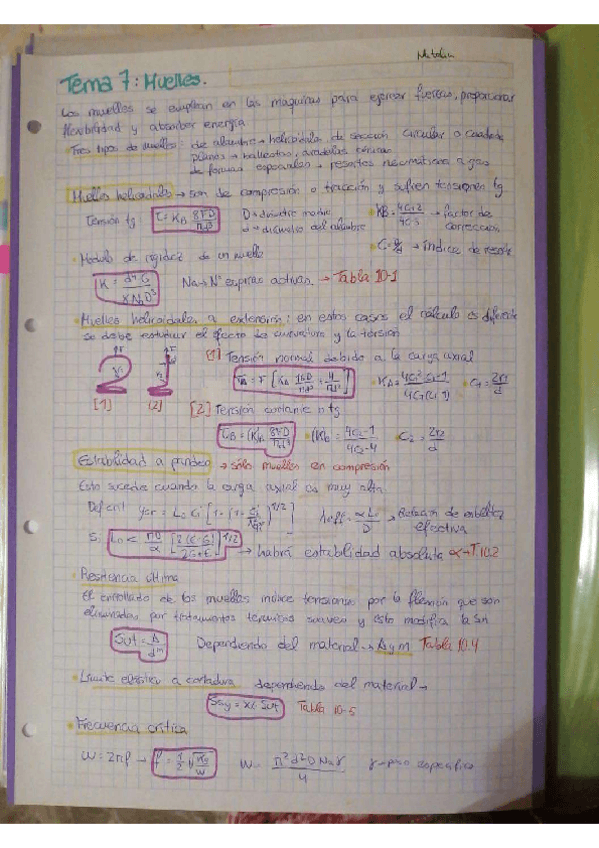 Tema 7: Muelles.
Los muelles se emplean en las maquinas para ejercer fuerzas, proporcionar
flexibilidad y absorber energía
Tres tipos de muelles: de alambre → helicoidales de sección circular o cuadrada
planos → ballestas,
de formas especiales → resortes neumáticos a gas
Muelles helicoidales → son de compresión o tracción y sufren tensiones tg
Tensión tg τ = KB 8FD/πd³ D → diámetro medio KB = 4C+2/4C-3 → factor de corrección
d → diámetro del alambre
C = D/d → índice de resorte
Modulo de rigidez de un muelle
K = d⁴G/8NaD³ Na → Nº espiras activas → Tabla 10-1
Muelles helicoidales a extensión: en estos casos el cálculo es diferente
se debe estudiar el efecto de curvatura y la torsión
[1] Tensión normal debido a la carga axial
[1] [2]
[2] Tensión cortante o tg
(K)B = 4C2-1/4C2-4 C2 = 2r2/d
Estabilidad a pandeo → sólo muelles en compresión
Esto sucede cuando la carga axial es muy alta
λeff = αL/D → Relación de esbeltez
efectiva
Si L0 < πD/α [2(E-G)/2G+E]1/2 → habrá estabilidad absoluta α → T 10.2
Resistencia última
El enrollado de los muelles induce tensiones por la flexión que son
eliminadas por tratamientos térmicos suaves y esto modifica la
Sut = A/dm Dependiendo del material → A y m Tabla 10.4
Límite elástico a cortadura dependiendo del material →
Tabla 10-5
Frecuencia crítica
W = 2πf → W = π²d²DNaγ/4 γ → peso específico